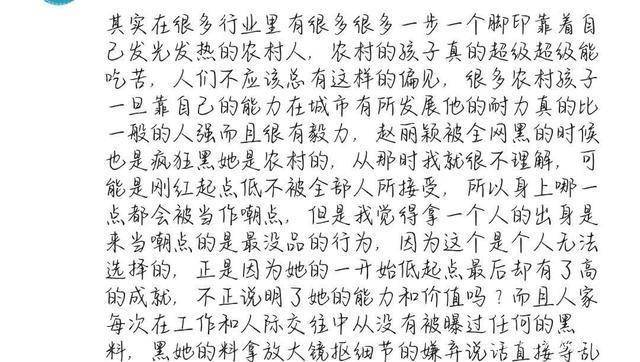 其实在很多行业里有很多很多一步一个脚印靠着自
己发光发热的农村人，农村的孩子真的超级超级能
吃苦，人们不应该总有这样的偏见，很多农村孩子
一旦靠自己的能力在城市有所发展他的耐力真的比
一般的人强而且很有毅力，赵丽颖被全网黑的时候
也是疯狂黑她是农村的，从那时我就很不理解，可
能是刚红起点低不被全部人所接受，所以身上哪一
点都会被当作嘲点，但是我觉得拿一个人的出身是
来当嘲点的是最没品的行为，因为这个是个人无法
选择的，正是因为她的一开始低起点最后却有了高
的成就，不正说明了她的能力和价值吗？而且人家
每次在工作和人际交往中从没有被曝过任何的黑
料，黑她的料拿放大镜抠细节的嫌弃说话直接等乱